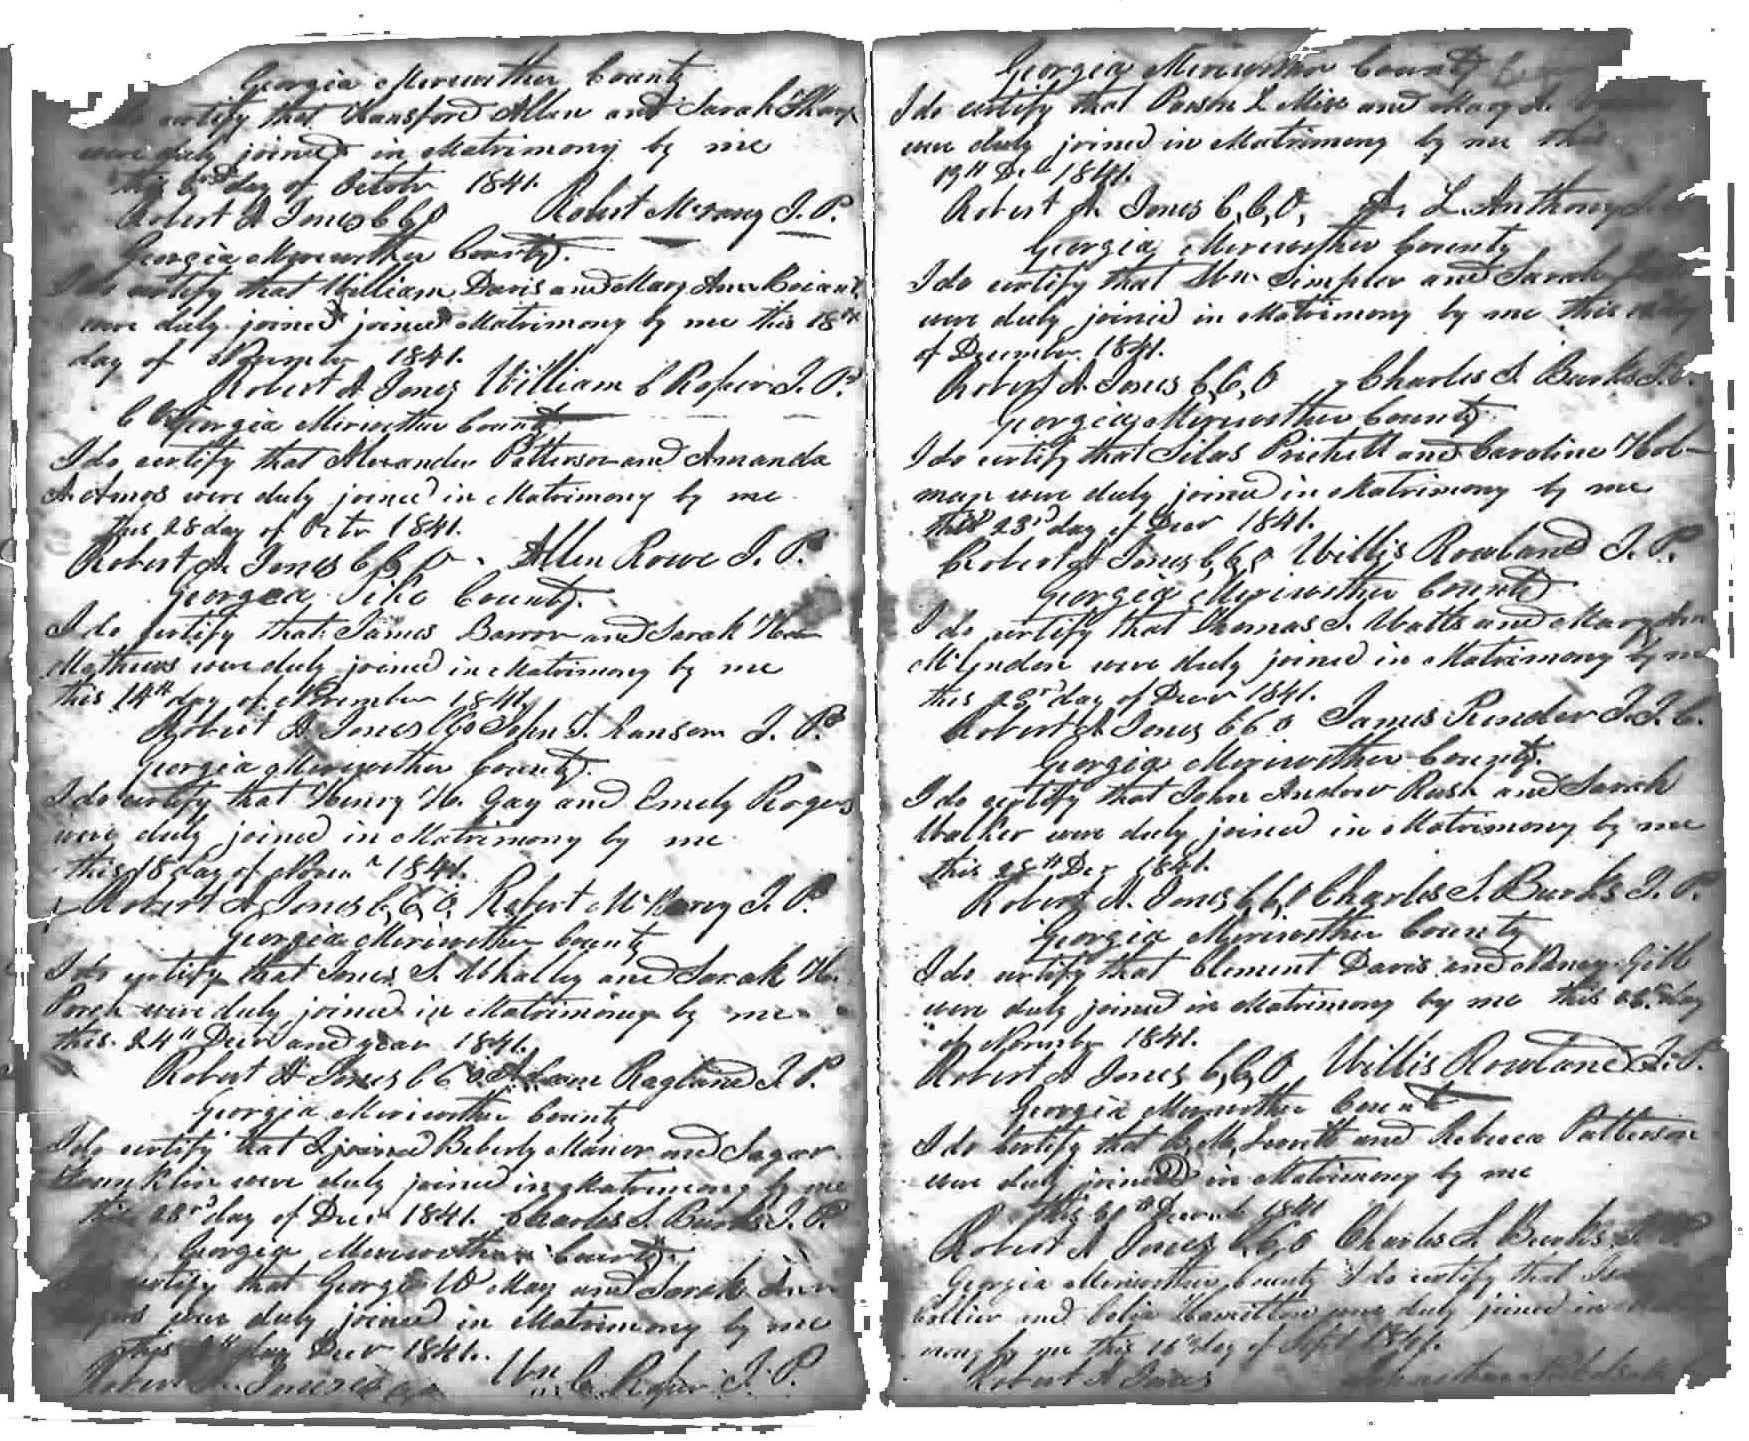 Georgia Meriwether County
certify that Hansford Allen and Sarah
were duly joined in Matrimony by me
this day of October 1841.
Robert A Jones C C O Robert McVarey J. P.
Georgia Meriwether County.
I do certify that William Davis and Mary Ann Briant
were duly joined joined Matrimony by me this 18th
day of November 1841.
Robert A Jones William C Roper J. P.
C C O Georgia Meriwether County
I do certify that Alexander Patterson and Amanda
A. Amos were duly joined in Matrimony by me
this 28 day of Octr 1841.
Robert A. Jones C C O. Allen Rowe J. P.
Georgia Pike County.
I do certify that James Barron and Sarah
Mathews were duly joined in Matrimony by me
this 14th day of November 1841.
Robert A Jones CCO John T. Ransom J. P.
Georgia Meriwether County.
I do certify that Henry H. Gay and Emely Rogers
were duly joined in Matrimony by me
this 18 day of 1841.
Robert A Jones C, C, O, Robert McVarey J. P.
Georgia Meriwether County
I do certify that Jones S. Whalley and Sarah H.
were duly joined in Matrimony by me
this 24th Decr and year 1841.
Robert A Jones C C O Ragland J. P.
Georgia Meriwether County
I do certify that I joined Beberly Manior and
were duly joined in Matrimony by me
this 23rd day of Decr 1841. Charles S. Burks J. P.
Georgia Meriwether County.
certify that George W May and Sarah Ann
were duly joined in Matrimony by me
this day Decr 1841.
Robert A. Jones C C O Wm C. Roper J. P.
Georgia Meriwether County
I do certify that L Mix and Mary A.
were duly joined in Matrimony by me this
19th Decr 1841.
Robert A. Jones C, C, O, A. L. Anthony
Georgia Meriwether County
I do certify that Wm Simpler and Sarah
were duly joined in Matrimony by me this day
of December 1841.
Robert A. Jones C, C, O Charles S. Burks J. P.
Georgia Meriwether County
I do certify that Silas Pritchett and Caroline Hol-
man were duly joined in Matrimony by me
this 23rd day of Decr 1841.
Robert A Jones C, C, O Willis Rowland J. P.
Georgia Meriwether County
I do certify that Thomas J. Watts and Mary Ann
McLendon were duly joined in Matrimony by me
this 23rd day of Decr 1841.
Robert A Jones C C O James Render J. I. C.
Georgia Meriwether County.
I do certify that John Andrew Rush and Sarah
Walker were duly joined in Matrimony by me
this 28th Dec 1841.
Robert A. Jones C, C, O Charles S. Burks J. P.
Georgia Meriwether County
I do certify that Clement Davis and Nancy Gill
were duly joined in Matrimony by me this day
of November 1841.
Robert A Jones C, C, O Willis Rowland J. P.
Georgia Meriwether County
I do certify that M, Leverett and Rebecca Patterson
were duly joined in Matrimony by me
this 1841
Robert A Jones C, C, O Charles S Burks J. P.
Georgia Meriwether County I do certify that
Collier and Celia Hamilton were duly joined in
mony by me this 16th day of Sept 1841.
Robert A Jones